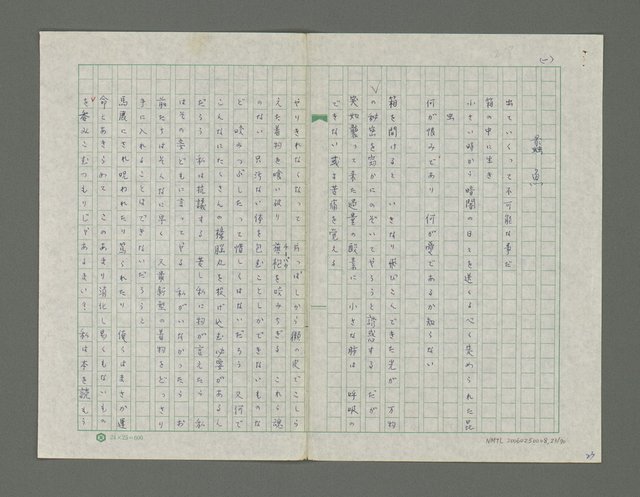 (一)
蠹魚
出ていくって不可能な事だ
箱の中に生き
小さい時から暗闇の日々を送るべく決められた昆
虫
何が恨みであり 何が愛であるか知らない
箱を開けると いきなり飛びこんできた光が 万物
の秘密を窃かにのぞいてやろうと誘惑する だが
突如襲って来た過量の酸素に 小さな肺は 呼吸の
できない或る苦痛を覚える
やりきれなくなって 片っぱしから獺の皮でこしら
えた着物を喰い破り 旗袍を咬みちぎる これら魂
のない 只汚ない体を包むことしかできないものな
ど 咬みつぶしたって惜しくはないだろう 又何で
こんなにたくさんの樟脳丸を投げ込む必要があるん
だろう 私は抗議する 若し私に物が言えたら 私
はその妻どもに言ってやる 私がいなかったら お
前たちはそんなに早く 又最新型の着物をどっさり
手に入れることはできないだろうと
馬鹿にされ呪われたり罵られたり 僕らはまさか運
命とあきらめて このあまり消化し易くもないもの
を呑みこむつもりじゃあるまいて 私は本を読もう
24×25=600
NMTL20060250048,27/90